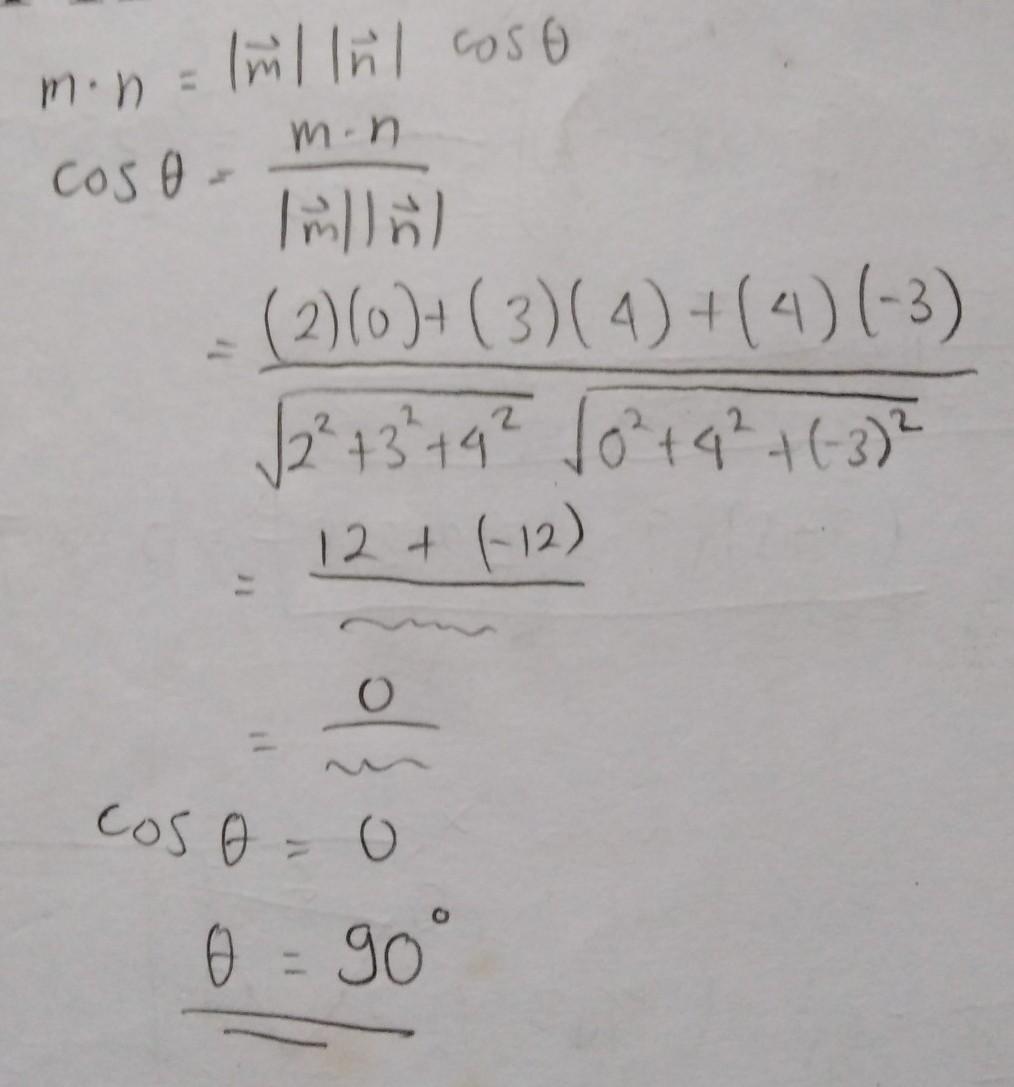 m·n = |m⃗| |n⃗| cos θ
cos θ = m·n / |m⃗||n⃗|
= (2)(0)+(3)(4)+(4)(-3) / √(2²+3²+4²) √(0²+4²+(-3)²)
= 12 + (-12) / ~~~
= 0 / ~~~
cos θ = 0
θ = 90°